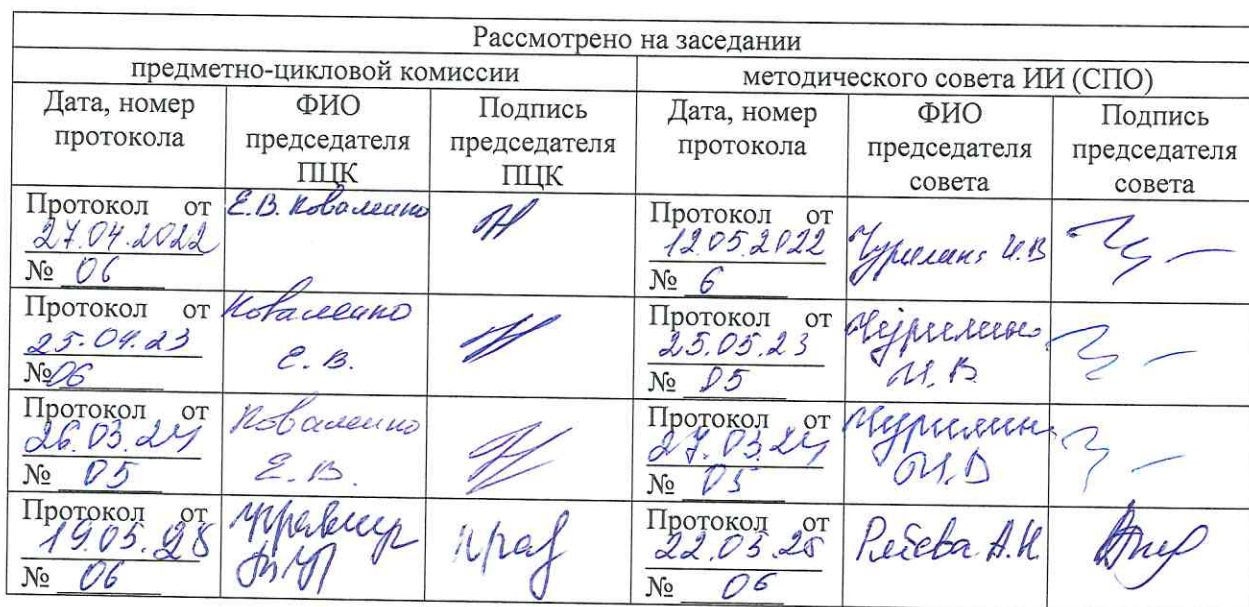 Рассмотрено на заседании
предметно-цикловой комиссии
методического совета ИИ (СПО)
Дата, номер протокола
ФИО председателя ПЦК
Подпись председателя ПЦК
Дата, номер протокола
ФИО председателя совета
Подпись председателя совета
Протокол от
27.04.2022
№ 06
Е.В. Коваленко
Протокол от
12.05.2022
№ 6
И.В
Протокол от
25.04.23
№ 06
Коваленко
Е.В.
Протокол от
25.05.23
№ 05
И.В.
Протокол от
26.03.24
№ 05
Коваленко
Е.В.
Протокол от
27.03.24
№ 05
Протокол от
19.05.25
№ 06
Протокол от
22.05.25
№ 06
А.Н.